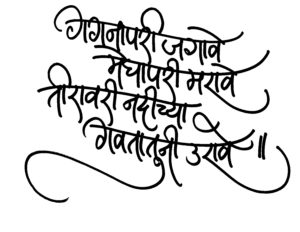 गगनापरी जगावे
मेघापरी मरावे
तीरावरी नदीच्या
गवतातूनी उरावे ॥